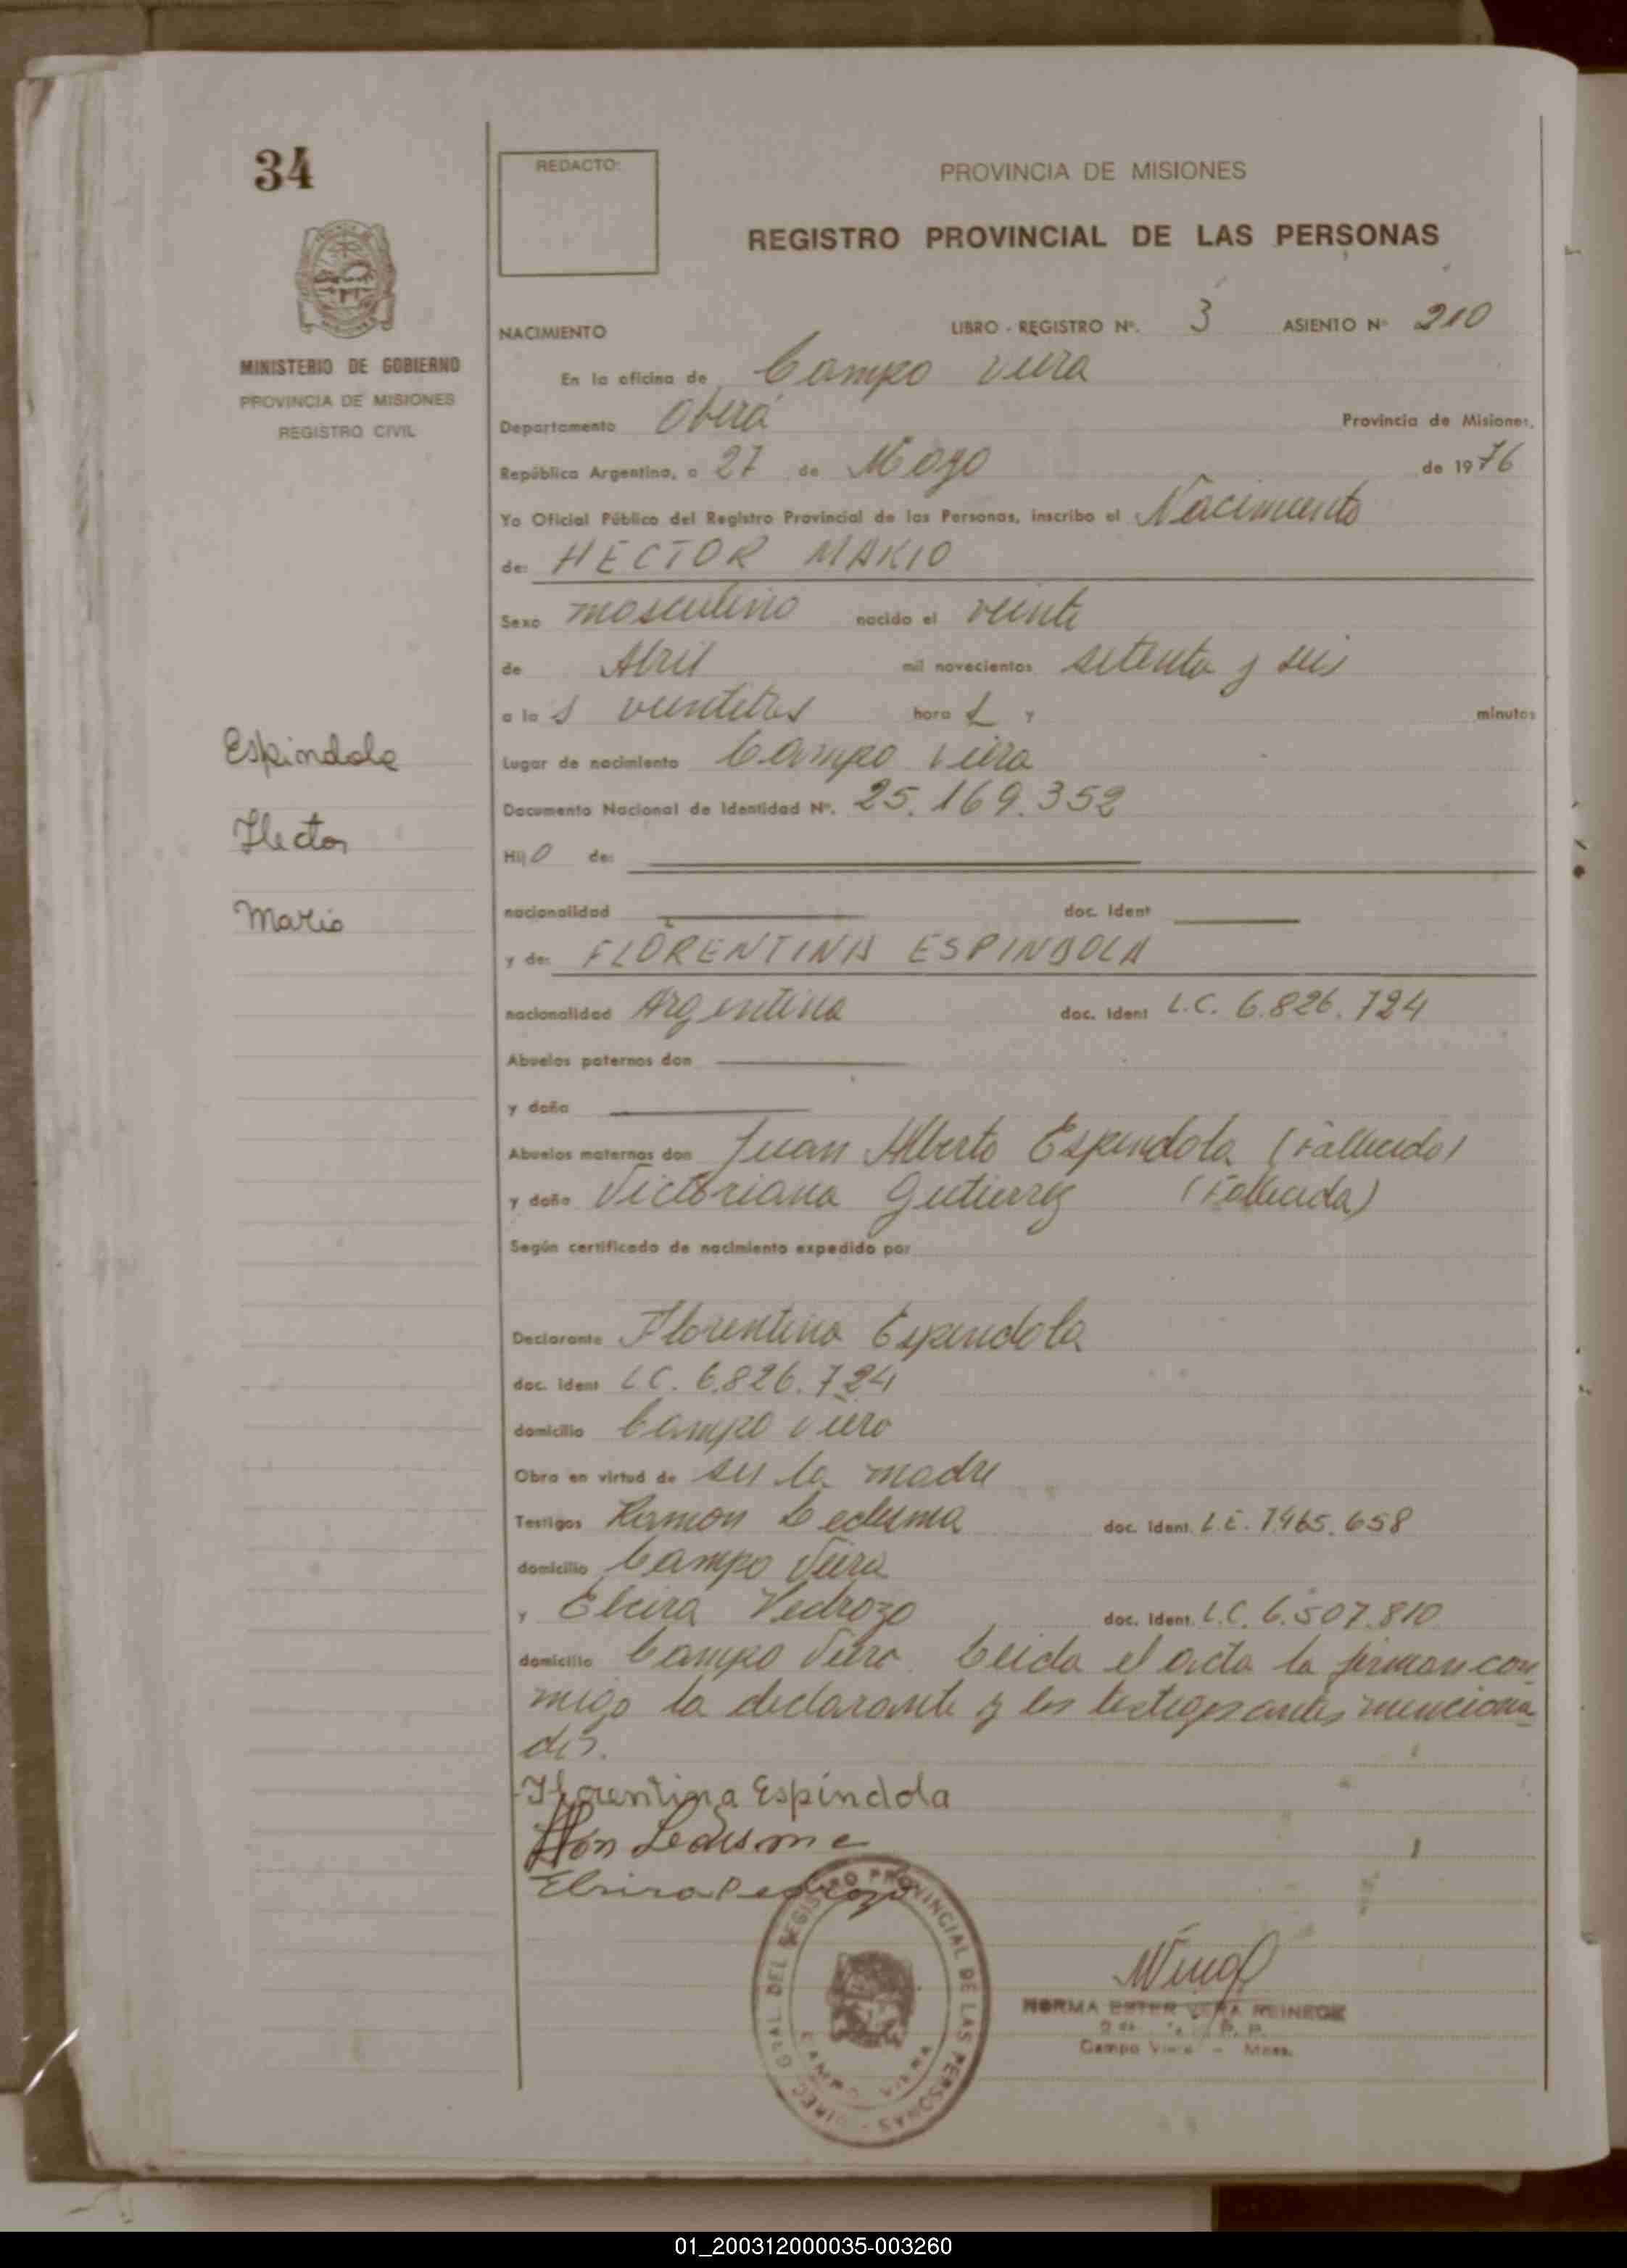 34
REDACTO:
PROVINCIA DE MISIONES
REGISTRO PROVINCIAL DE LAS PERSONAS
MINISTERIO DE GOBIERNO
PROVINCIA DE MISIONES
REGISTRO CIVIL
NACIMIENTO LIBRO - REGISTRO Nº. 3 ASIENTO Nº 210
En la oficina de Campo Viera
Departamento Oberá Provincia de Misiones,
República Argentina, a 27 de Mayo de 1976
Yo Oficial Público del Registro Provincial de las Personas, inscribo el Nacimiento
de: HECTOR MARIO
Sexo masculino nacido el veinte
de Abril mil novecientos setenta y seis
a las veintitres hora s y minutos
Espindola
Lugar de nacimiento Campo Viera
Documento Nacional de Identidad Nº. 25.169.352
Hector
Hijo de:
Mario
nacionalidad doc. Ident
y de: FLORENTINA ESPINDOLA
nacionalidad Argentina doc. Ident L.C. 6.826.724
Abuelos paternos don
y doña
Abuelos maternos don Juan Alberto Espindola (Fallecido)
y doña Victoriana Gutierrez (Fallecida)
Según certificado de nacimiento expedido por
Declarante Florentina Espindola
doc. Ident L.C. 6.826.724
domicilio Campo Viera
Obra en virtud de ser la madre
Testigos Ramon Ledesma doc. Ident. L.E. 7.465.658
domicilio Campo Viera
y Elvira Pedrozo doc. Ident. L.C. 6.507.810
domicilio Campo Viera. Leida el acta la firman con
migo la declarante y los testigos antes menciona
dos.
Florentina Espíndola
Ledesma
Elvira Pedrozo
DIREC. GRAL DEL REGISTRO PROVINCIAL DE LAS PERSONAS
CAMPO VIERA
NORMA ESTER VERA REINECK
Campo Viera - Mnes.
01_200312000035-003260